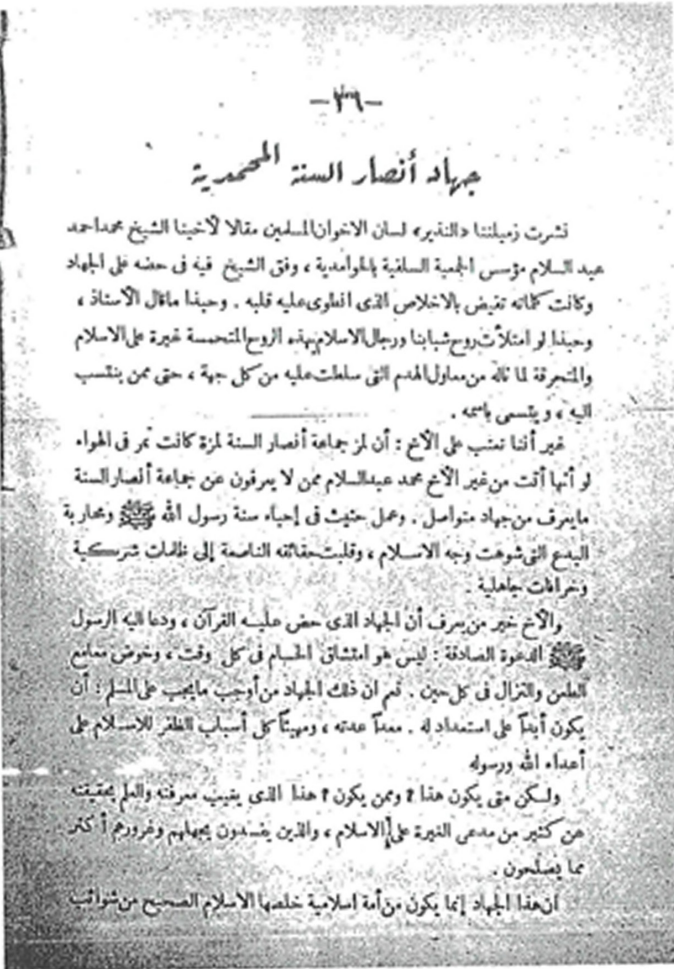 — ٣٦ —
جهاد أنصار السنة المحمدية
نشرت زميلتنا «النذير» لسان الاخوان المسلمين مقالا لأخينا الشيخ محمد احمد
عبد السلام مؤسس الجمعية السلفية بالحوامدية ، وفق الشيخ فيه فى حضه على الجهاد
وكانت كلماته تفيض بالاخلاص الذى انطوى عليه قلبه . وحبذا ما قال الأستاذ ،
وحبذا لو امتلأت روح شبابنا ورجال الاسلام بهذه الروح المتحمسة غيرة على الاسلام
والمتحرقة لما ناله من معاول الهدم التى سلطت عليه من كل جهة ، حتى ممن ينتسب
اليه ، ويتسمى باسمه .
غير أننا نعتب على الأخ : أن لمز جماعة أنصار السنة لمزة كانت تمر فى الهواء
لو أنها أتت من غير الأخ محمد عبد السلام ممن لا يعرفون عن جماعة أنصار السنة
ما يعرف من جهاد متواصل . وعمل حثيث فى إحياء سنة رسول الله ﷺ ومحاربة
البدع التى شوهت وجه الاسلام ، وقلبت حقائقه الناصعة إلى ظلمات شركية
وخرافات جاهلية .
والأخ خير من يعرف أن الجهاد الذى حض عليه القرآن ، ودعا اليه الرسول
ﷺ الدعوة الصادقة : ليس هو امتشاق الحسام فى كل وقت ، وخوض معامع
الطعن والنزال فى كل حين . نعم ان ذلك الجهاد من أوجب ما يجب على المسلم : أن
يكون أبداً على استعداد له . معداً عدته ، ومهيئاً كل أسباب الظفر للاسلام على
أعداء الله ورسوله
ولكن متى يكون هذا ؟ وممن يكون ؟ هذا الذى يغيب معرفته والعلم بحقيقته
عن كثير من مدعى الغيرة على الاسلام ، والذين يفسدون بجهلهم وغرورهم أكثر
مما يصلحون .
ان هذا الجهاد إنما يكون من أمة اسلامية خلصها الاسلام الصحيح من شوائب